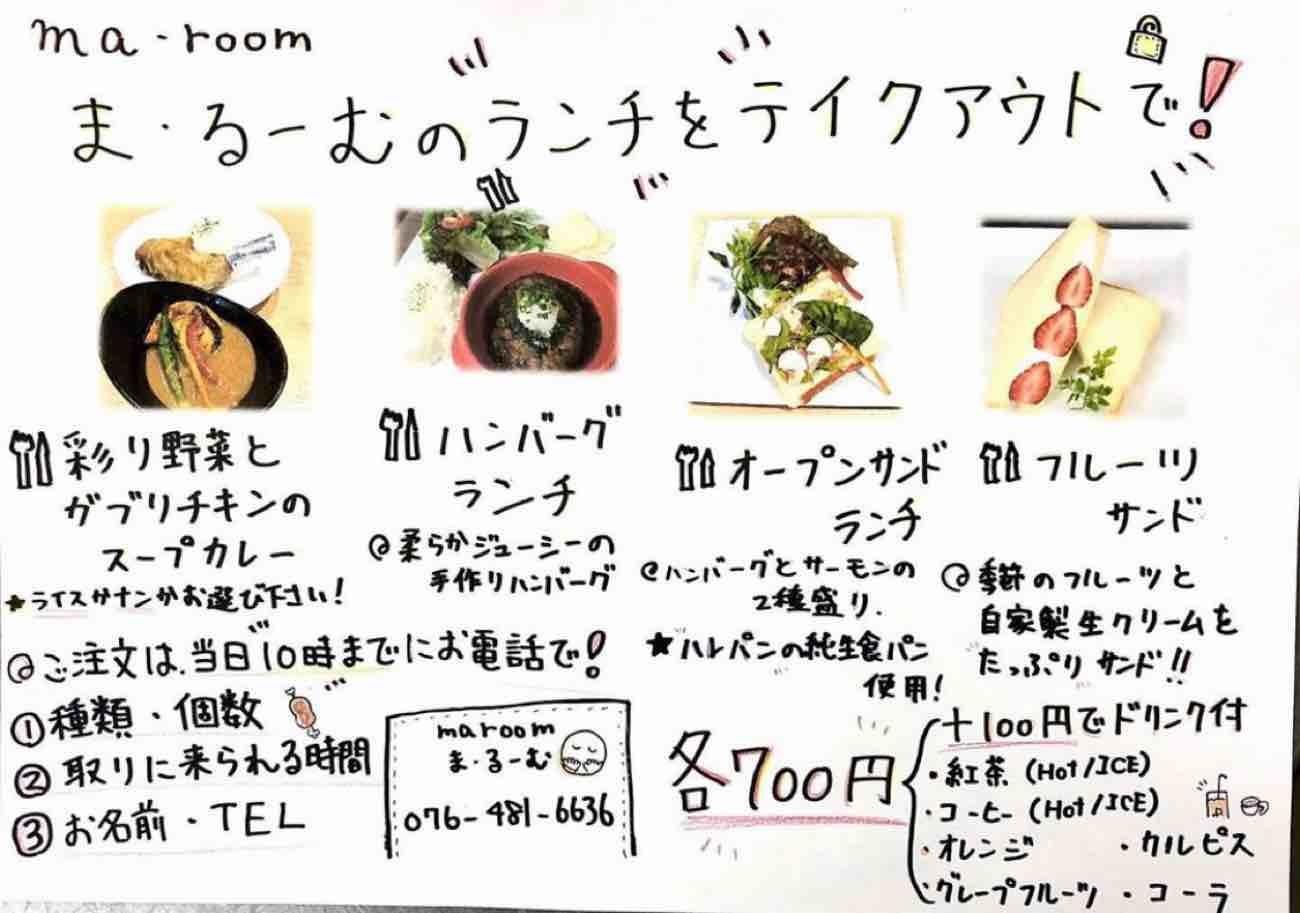 ma・room
ま・るーむのランチをテイクアウトで!
彩り野菜と
ガブリチキンの
スープカレー
★ライスかナンかお選び下さい!
ハンバーグ
ランチ
柔らかジューシーの
手作りハンバーグ
オープンサンド
ランチ
ハンバーグとサーモンの
2種盛り.
★ハレパンの純生食パン
使用!
フルーツ
サンド
季節のフルーツと
自家製生クリームを
たっぷりサンド!!
ご注文は、当日10時までにお電話で!
①種類・個数
②取りに来られる時間
③お名前・TEL
maroom
ま・るーむ
076-481-6636
各700円
+100円でドリンク付
・紅茶(Hot/ICE)
・コーヒー(Hot/ICE)
・オレンジ ・カルピス
・グレープフルーツ ・コーラ